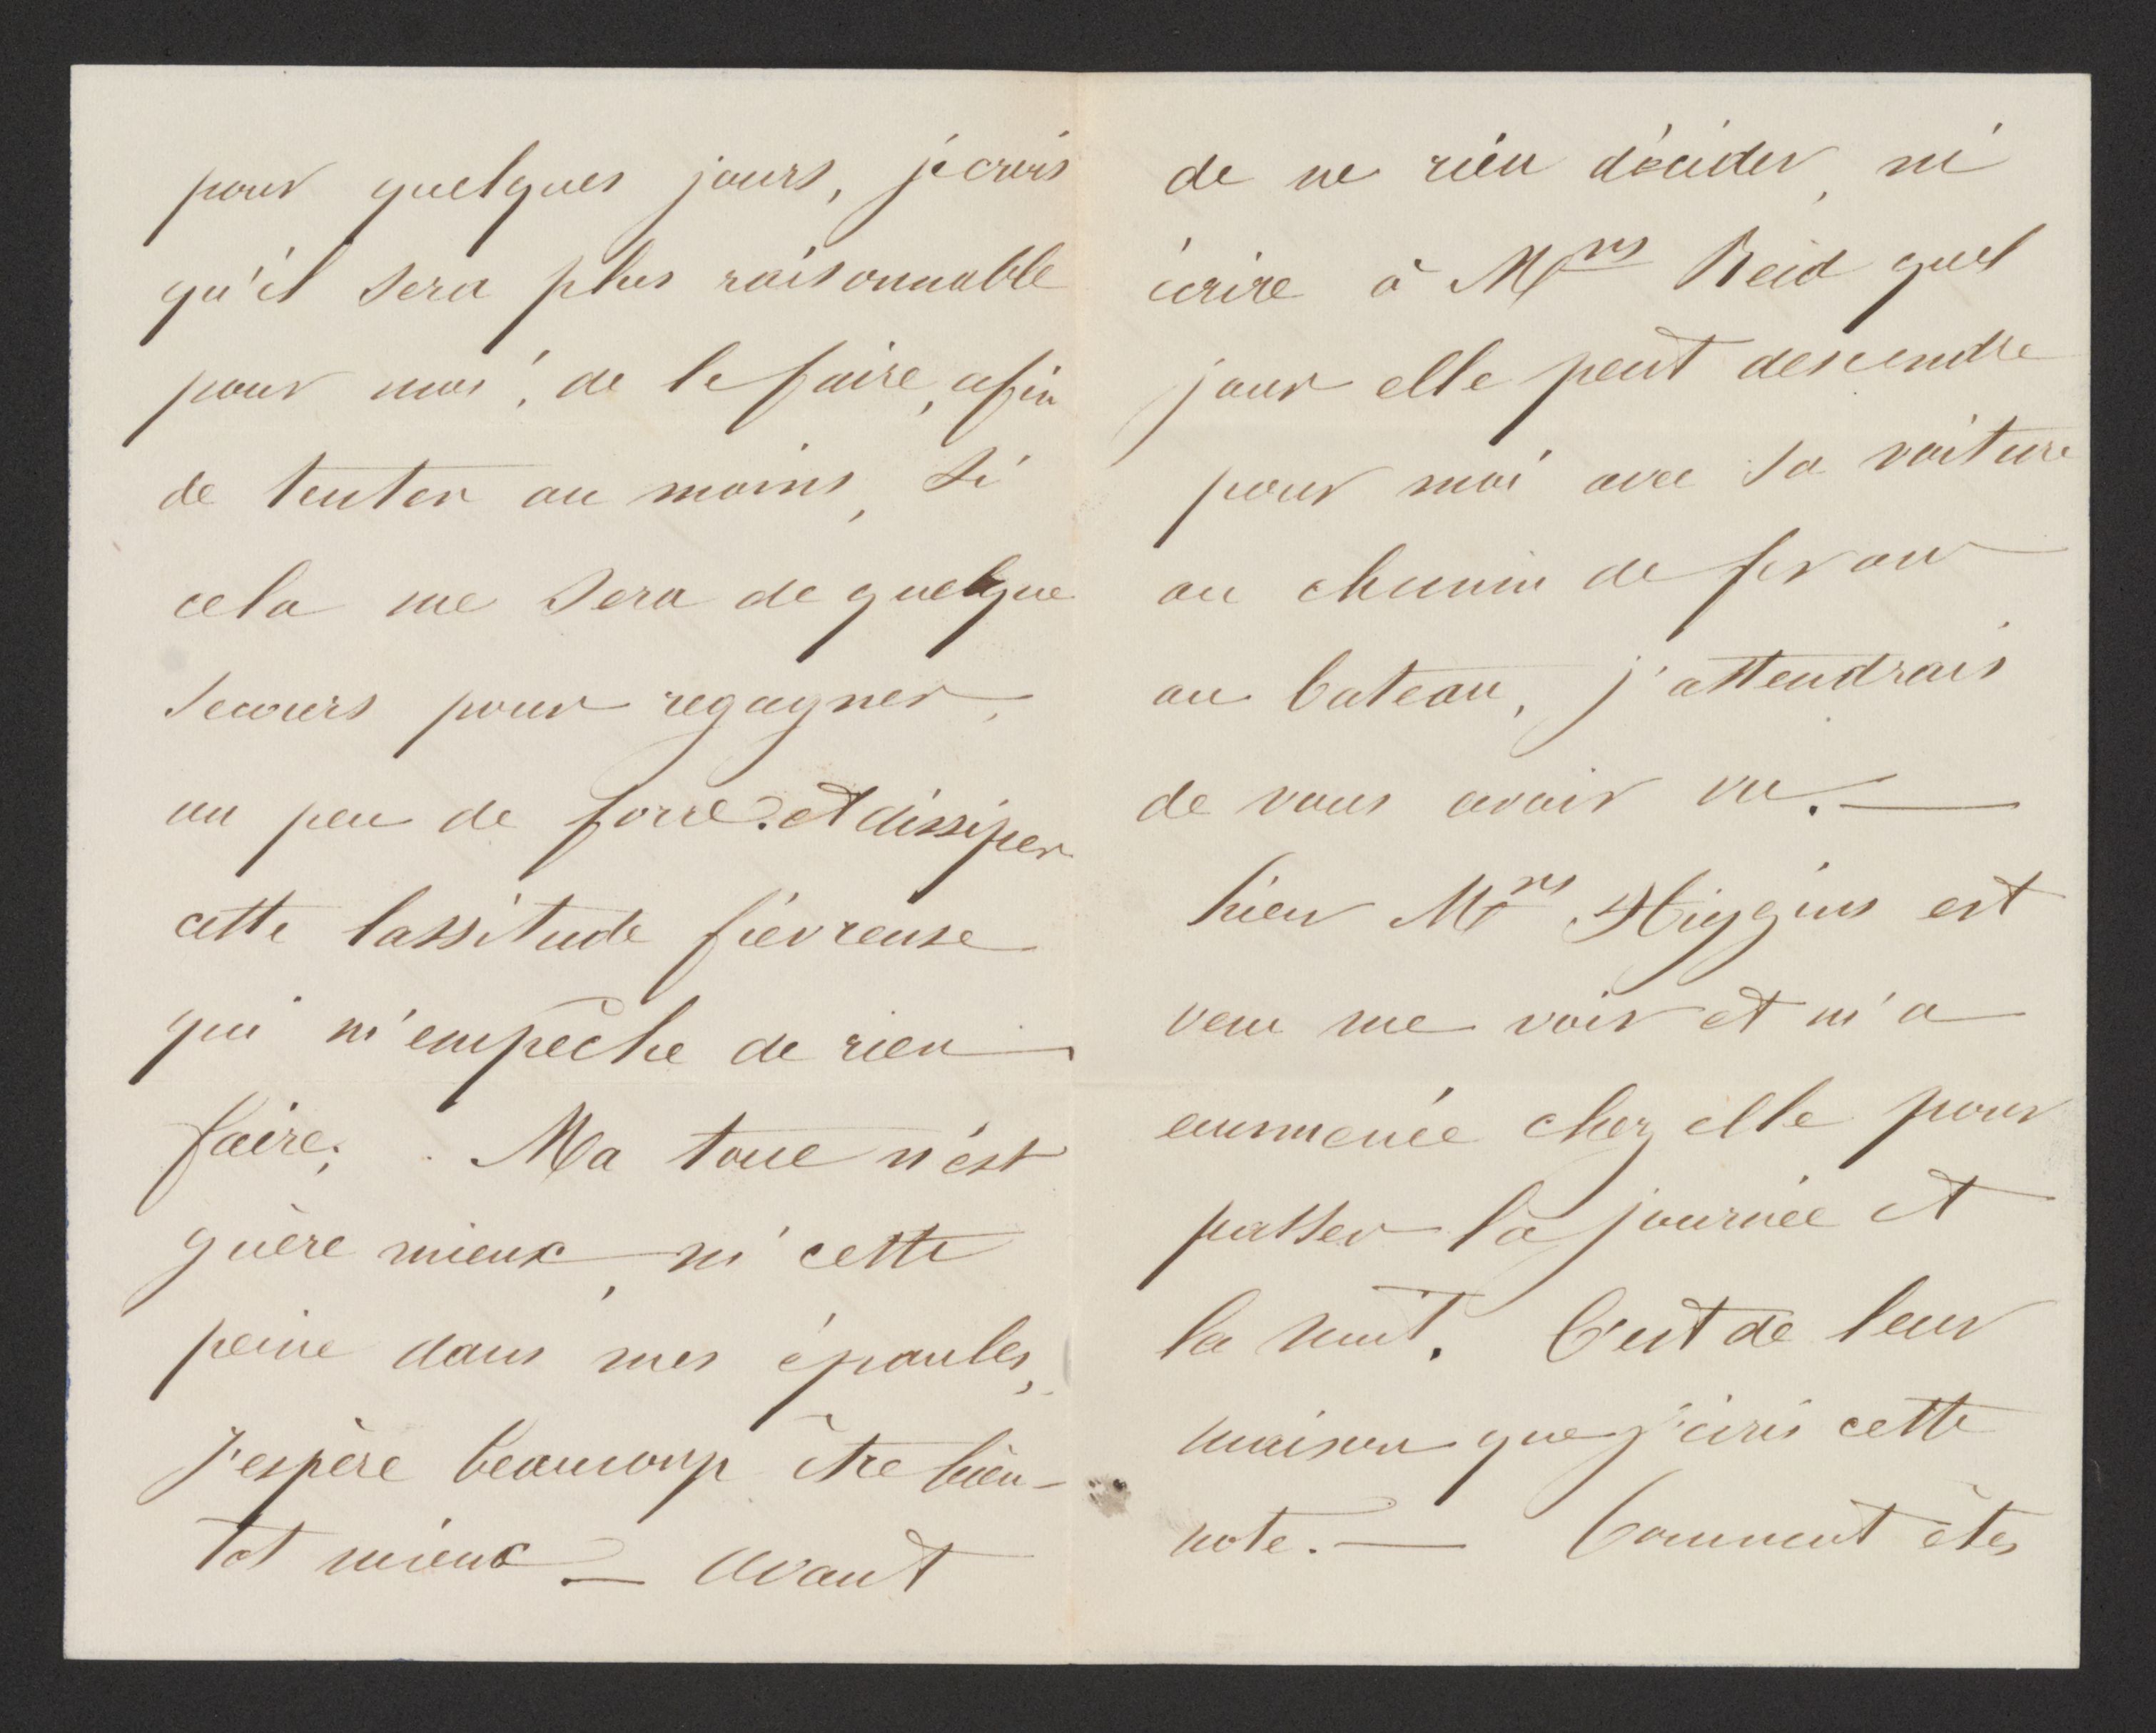 pour quelques jours, je crois
qu'il sera plus raisonnable
pour moi, de le faire, afin
de tenter au moins, si
cela me sera de quelque
secours pour regagner,
un peu de force. et dissiper
cette lassitude fiévreuse
qui m'empêche de rien
faire; Ma toue n'est
guère mieux, ni cette
peine dans mes épaules,
J'espère beaucoup être bien-
tot mieux. — Avant
de ne rien décider, ni
écrire à Mrs Reid quel
jour elle peut descendre
pour moi avec sa voiture
au chemin de fer ou
au bateau, j'attendrais
de vous avoir vu. —
hier Mrs Higgins est
venu me voir et m'a
emmenée chez elle pour
passer la journée et
la nuit. C'est de leur
maison que j'écris cette
note. — Comment êtes